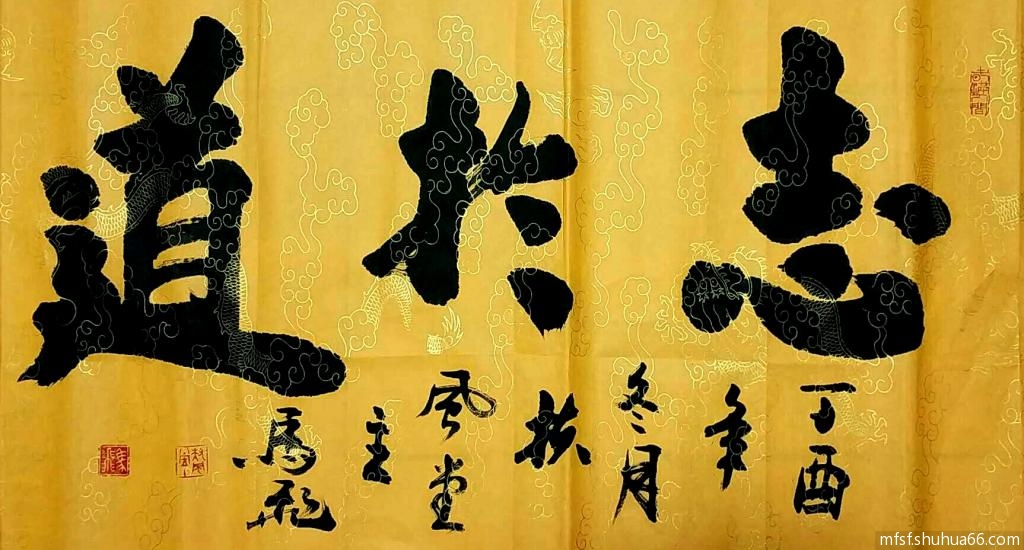 志於道
丁酉
年
冬月
扶
風堂
主
馬飛
mfsf.shuhua66.com